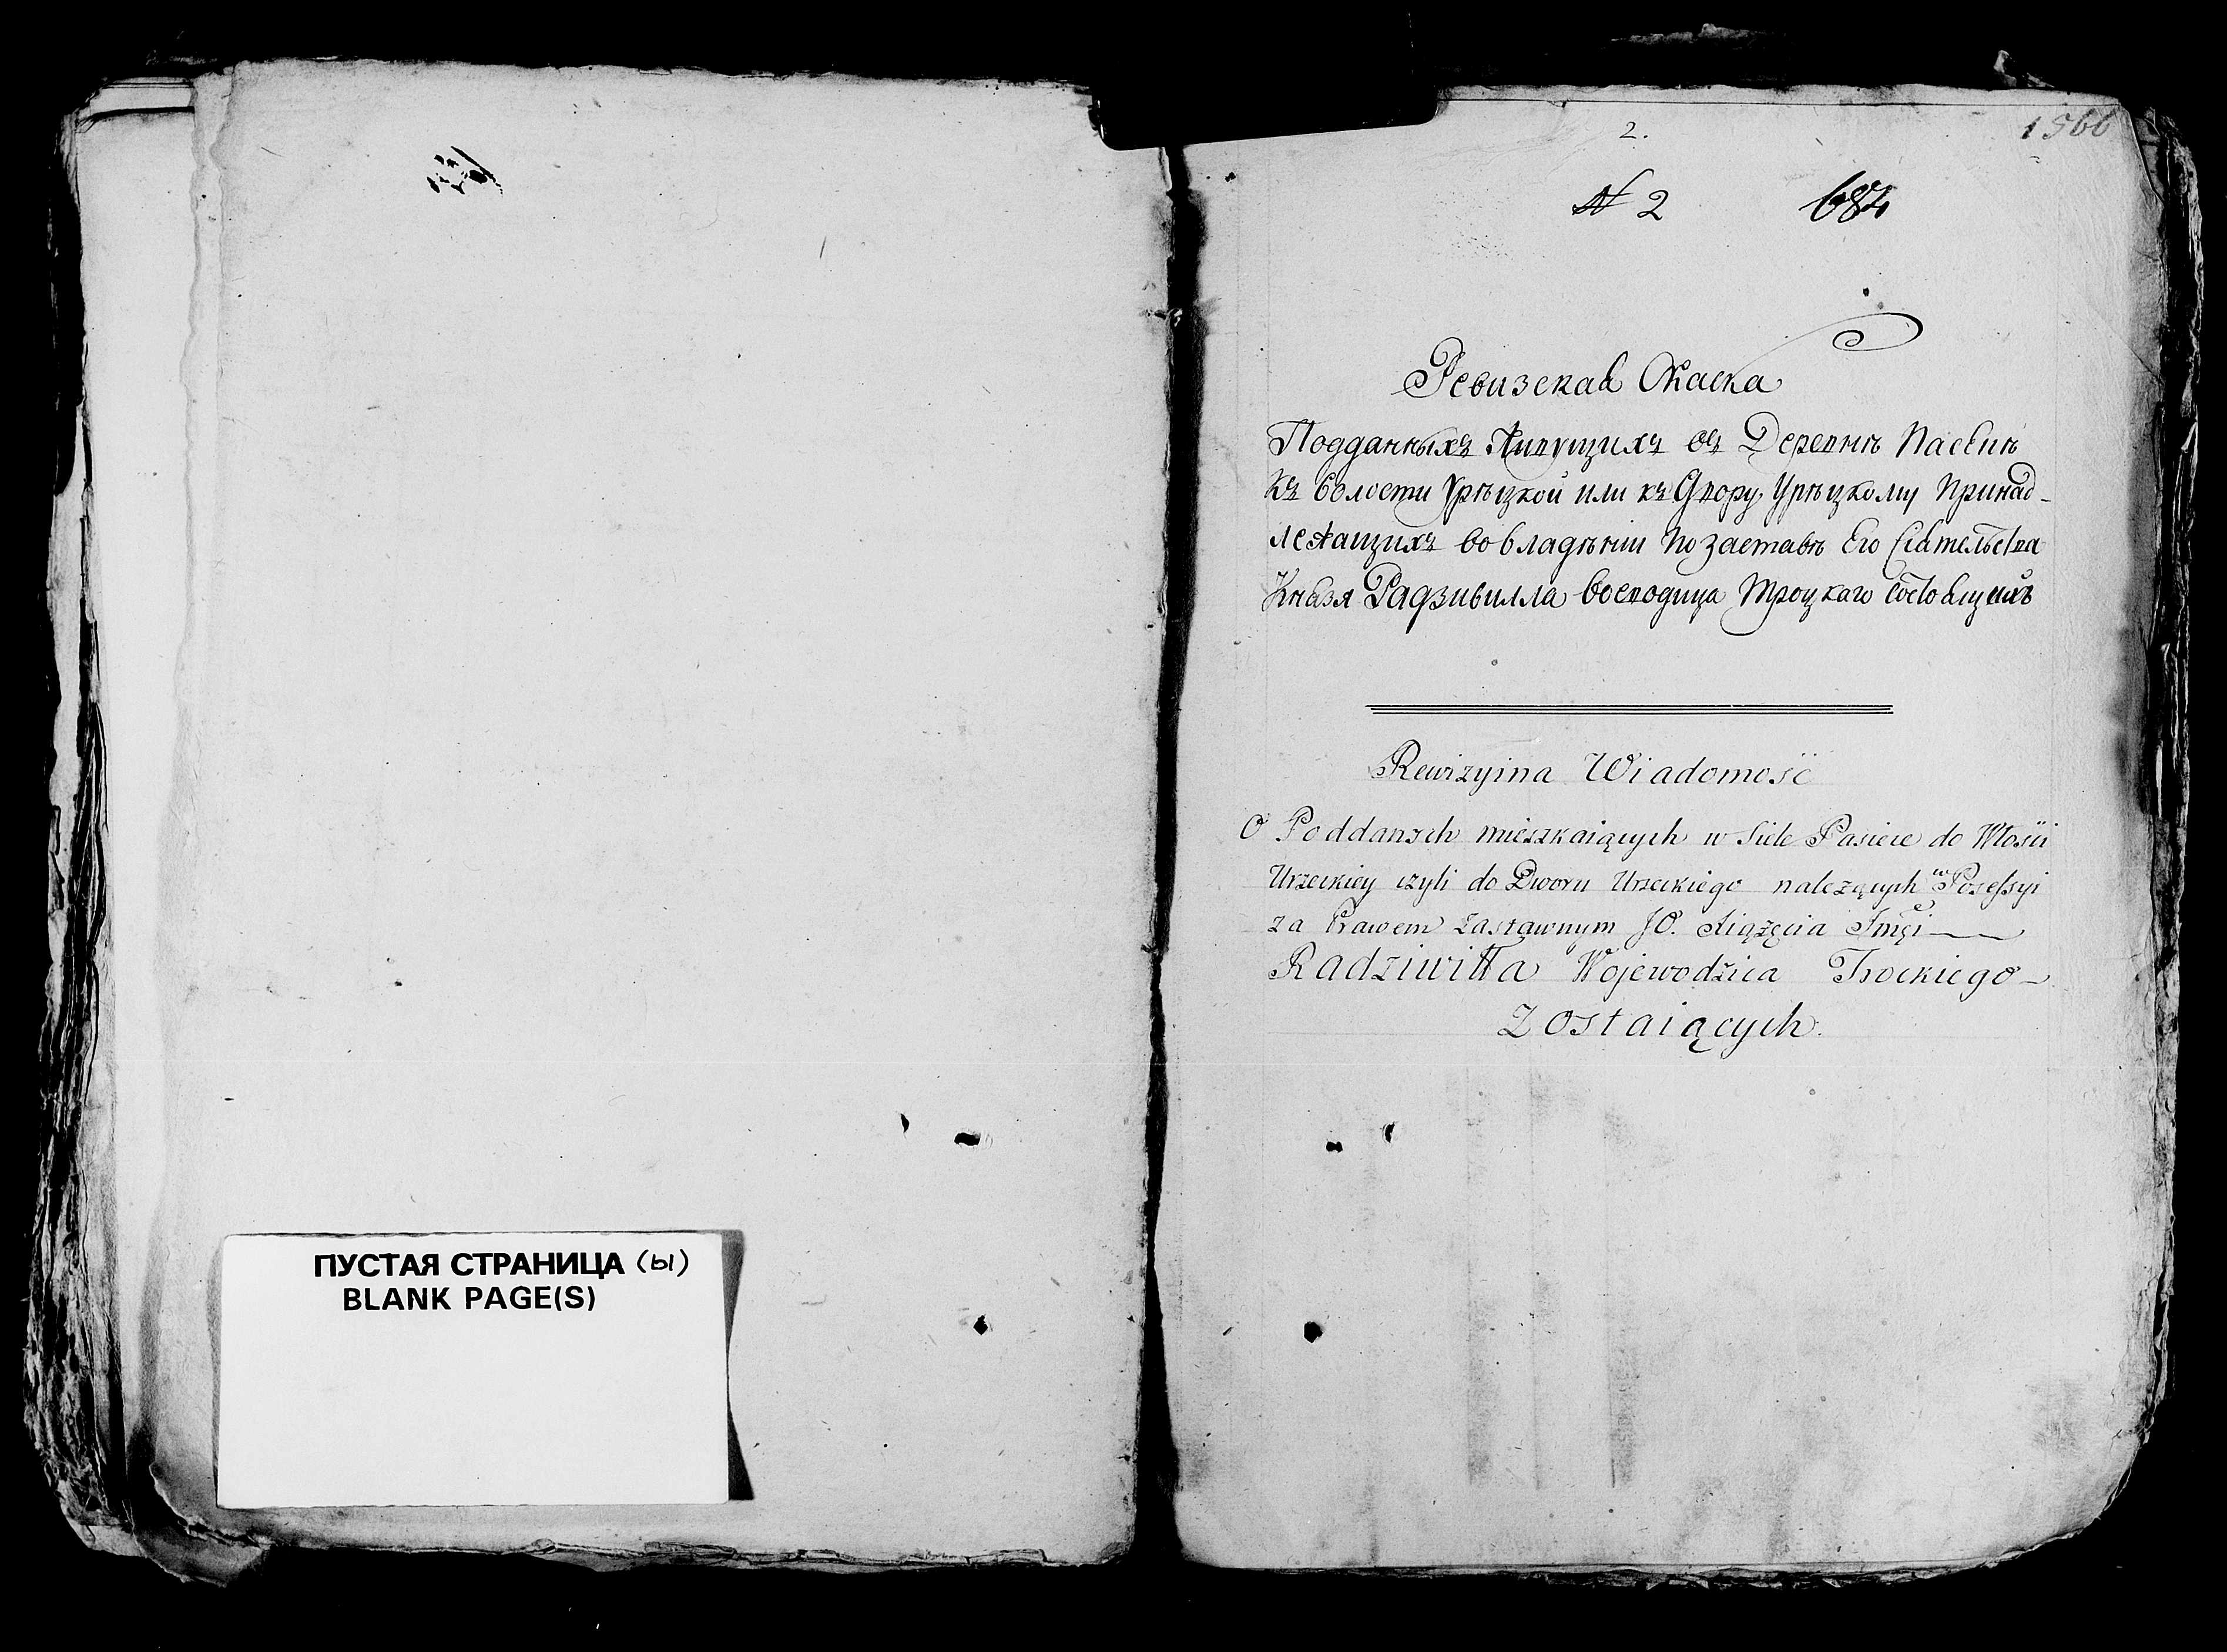 ПУСТАЯ СТРАНИЦА (ы)
BLANK PAGE(S)
2.
1566
№ 2 684
Ревизская Скаска
Подданныхъ Живущихъ въ Деревнѣ Пасекѣ
Къ волости Урѣцкой или къ Двору Урѣцкому Принад-
лежащихъ во владѣнiи По заставѣ Его Сiятельства
Князя Радзивилла воеводица Троцкаго состоящихъ
Rewizyina Wiadomość
O Poddanych mieszkaiących w Siele Pasiece do Włości
Urzeckiey czyli do Dworu Urzeckiego należących w Posessyi
za Prawem zastawnym JO. Xiążęcia Imći
Radziwiłła Wojewodzica Trockiego
Zostaiących.